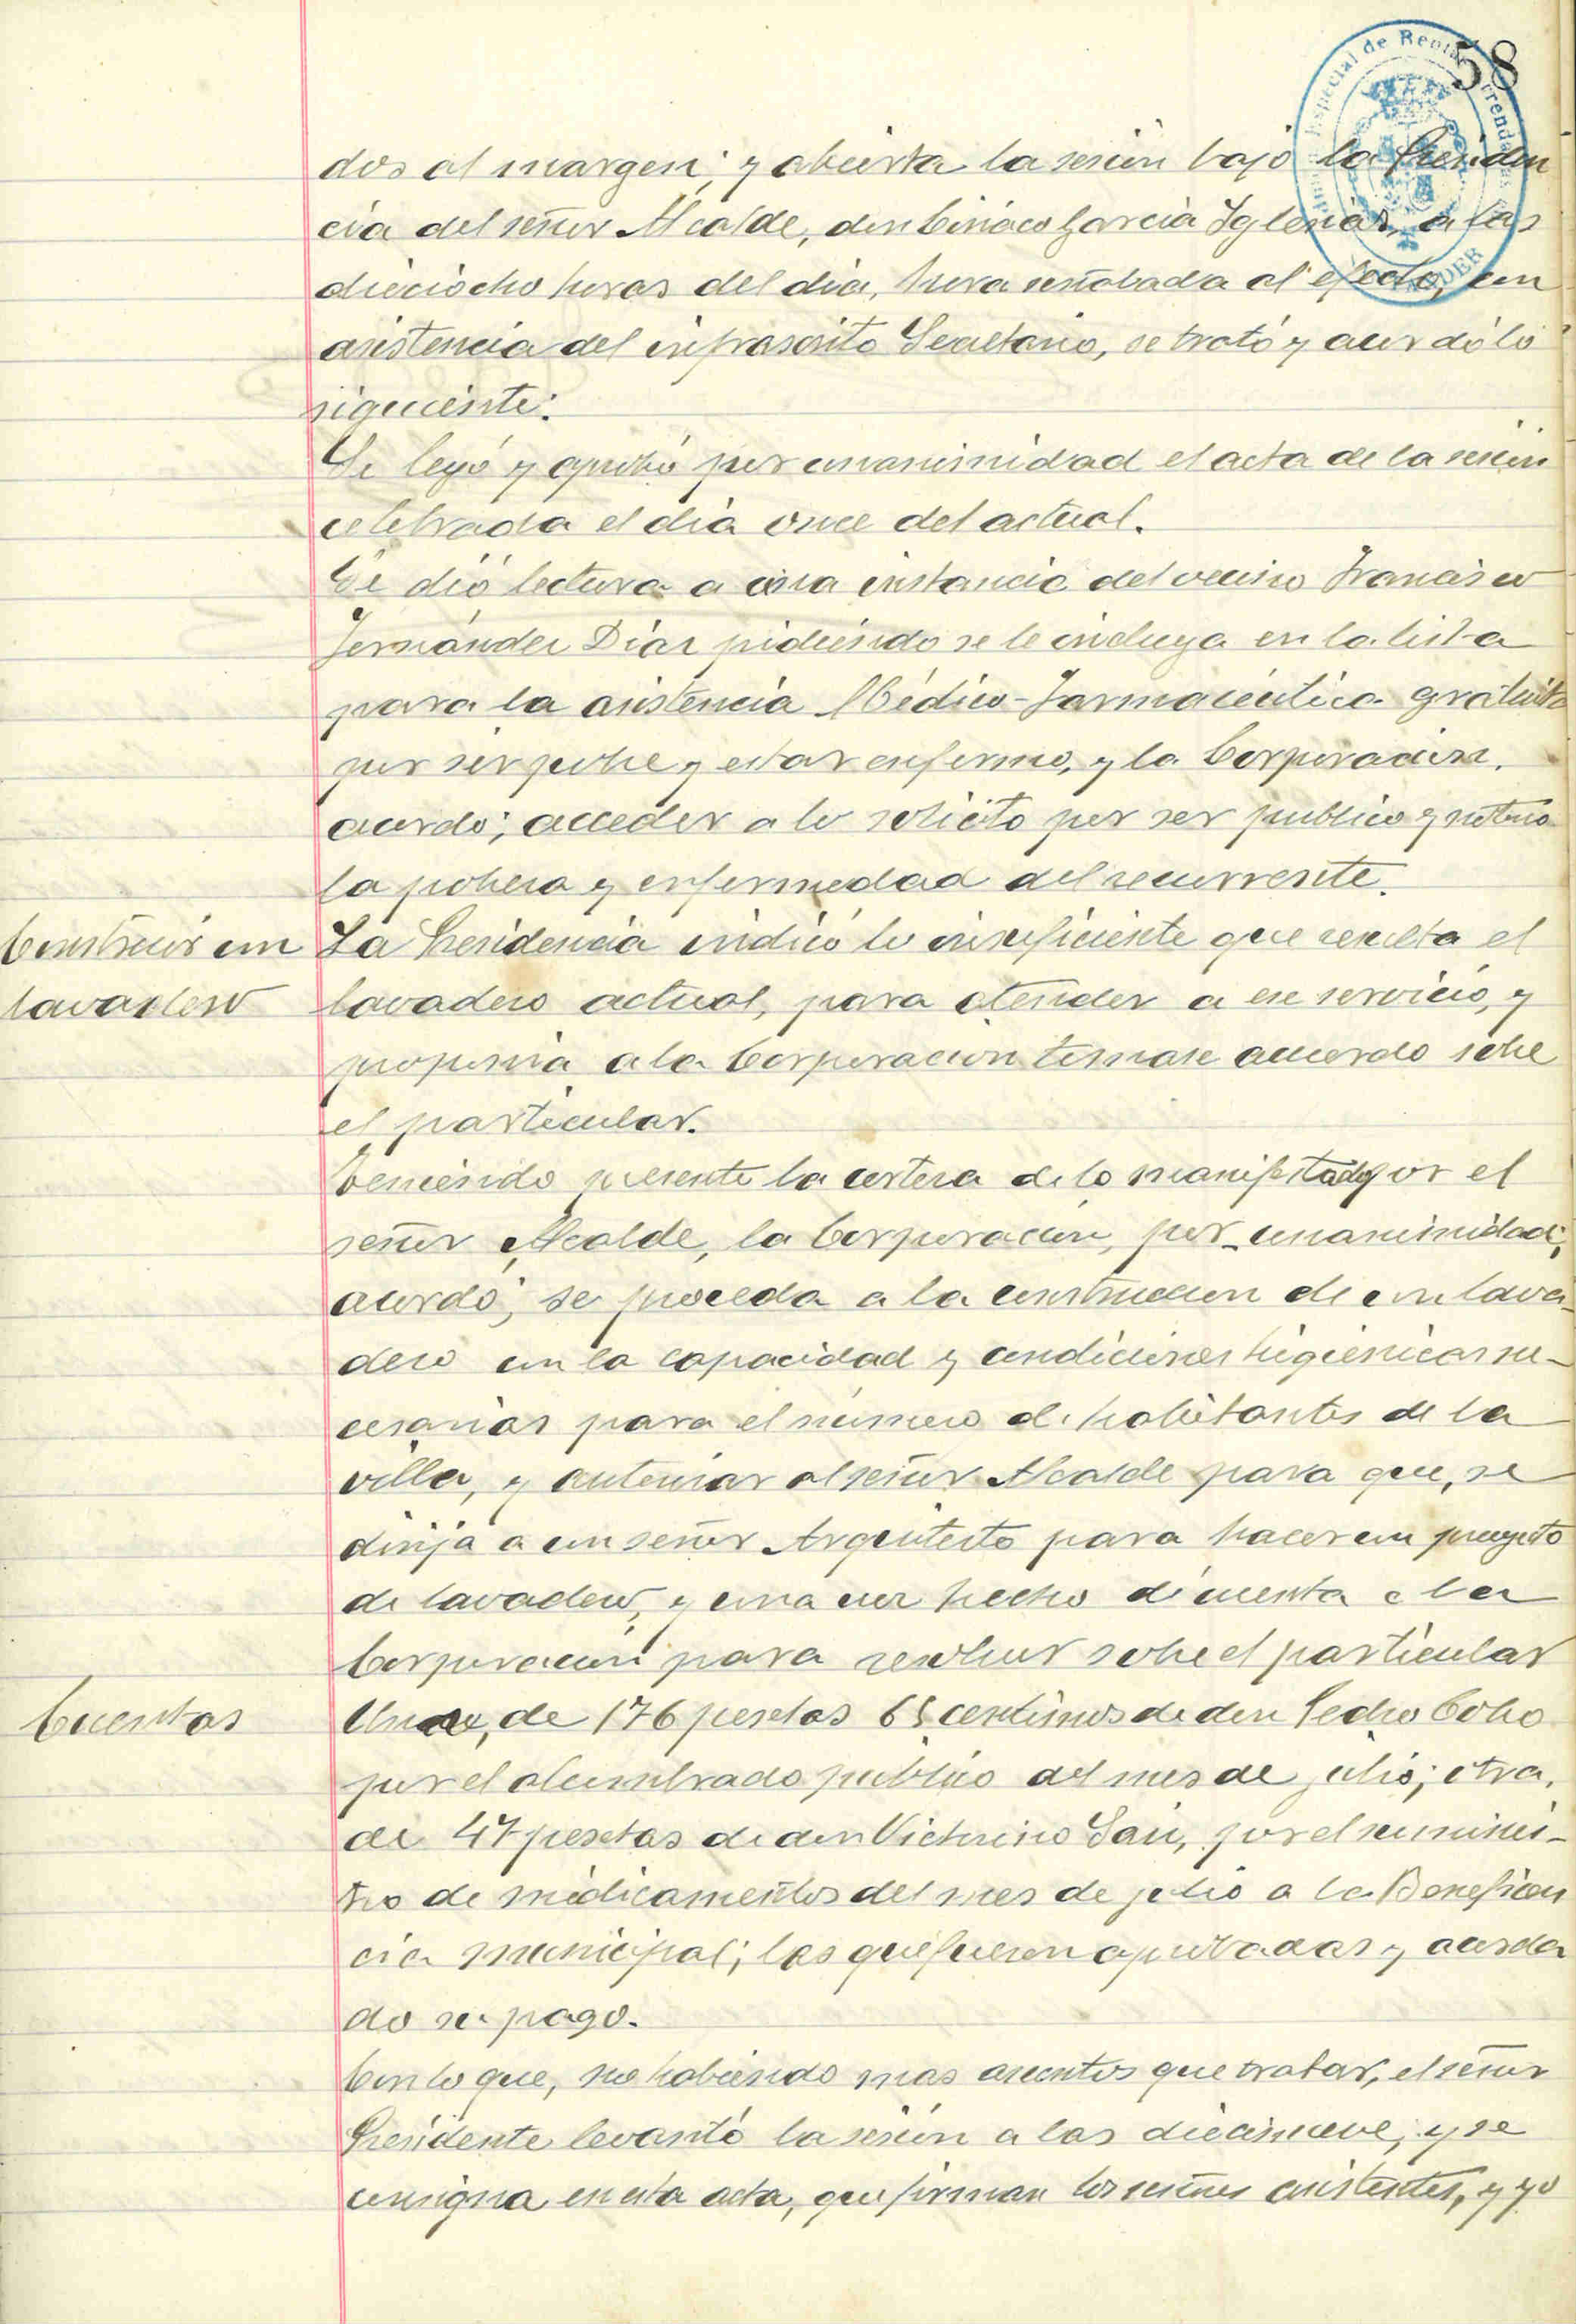 58
Especial de Renta
dos al margen; y abierta la sesión bajo la Presiden
cia del señor Alcalde, don Ciriaco García Iglesias, a las
dieciocho horas del dia, hora señalada al efecto, con
asistencia del infrascrito Secretario, se trató y acordó lo
siguiente:
Se leyó y aprobó por unanimidad el acta de la sesión
celebrada el día once del actual.
Se dió lectura a una instancia del vecino Francisco
Fernández Díaz pidiendo se le incluya en la lista
para la asistencia Médico-Farmacéutica gratuita
por ser pobre y estar enfermo, y la Corporación,
acordó; acceder a lo solicito por ser publico y notorio
la pobreza y enfermedad del recurrente.
Construir un
lavadero
La Presidencia indicó lo insuficiente que resulta el
lavadero actual, para atender a ese servicio, y
proponia a la Corporacion tomase acuerdo sobre
el particular.
Teniendo presente la certeza de lo manifestado por el
señor Alcalde, la Corporación, por unanimidad,
acordó; se proceda a la construccion de un lava
dero con la capacidad y condiciones higienicas ne-
cesarias para el número de habitantes de la
villa, y autorizar al señor Alcalde para que, se
dirija a un señor Arquitecto para hacer un proyecto
de lavadero, y una vez hecho dé cuenta a la
Corporación para resolver sobre el particular
Cuentas
Una, de 176 pesetas 65 centimos de don Pedro Cobo
por el alumbrado publico del mes de julio; otra,
de 47 pesetas de don Victorino Sai, por el suminis-
tro de medicamentos del mes de julio a la Beneficen
cia municipal; las que fueron aprobadas y acorda
do su pago.
Con lo que, no habiendo mas asuntos que tratar, el señor
Presidente levantó la sesión a las diecinueve, y se
consigna en esta acta, que firman los señores asistentes, y yo